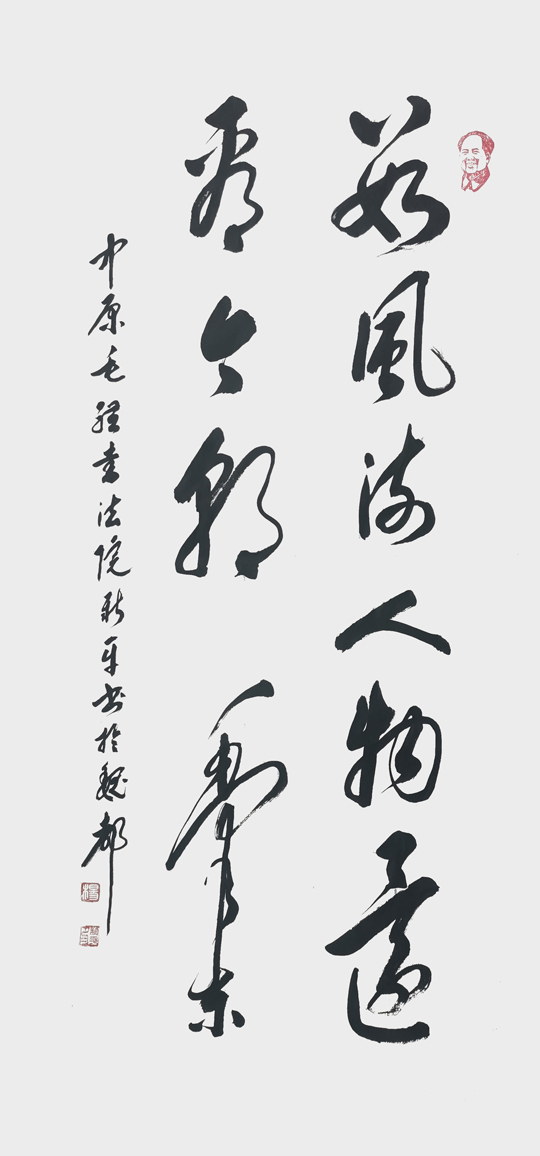 数風流人物還
看今朝 毛澤東
中原毛體書法院新平书於魏都